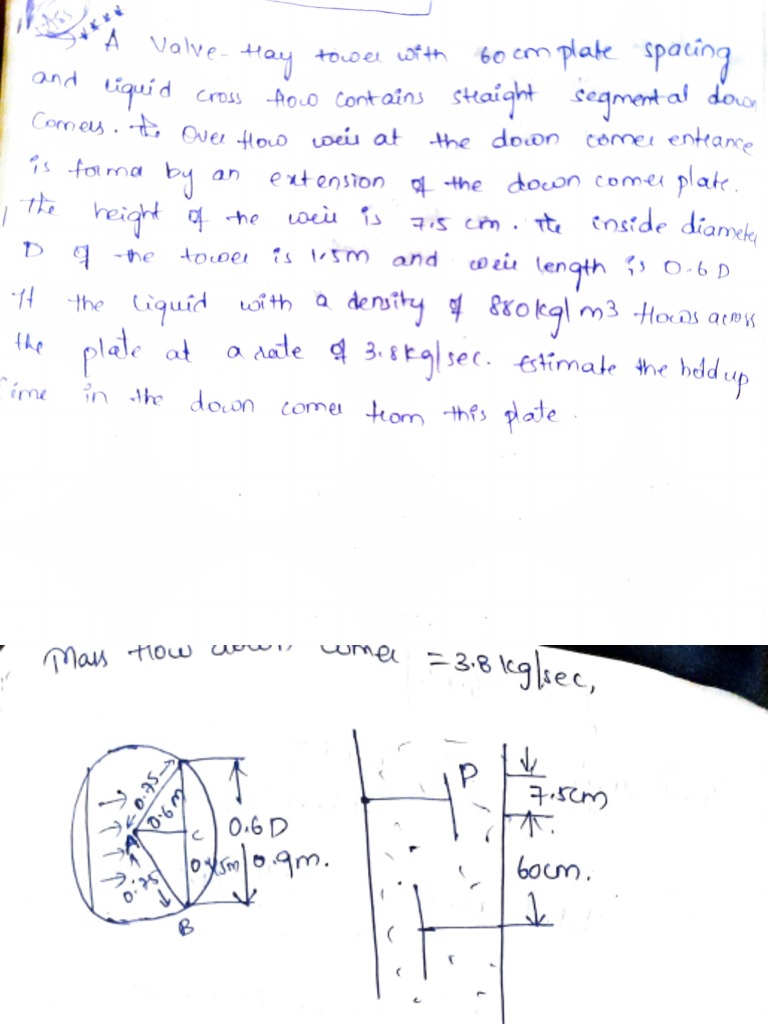 A Valve-tray tower with 60cm plate spacing
and liquid cross flow contains straight segmental down
Comers. the Over flow weir at the down comer entrance
is forma by an extension of the down comer plate.
The height of the weir is 7.5 cm. the inside diameter
D of the tower is 1.5m and weir length is 0.6D
If the liquid with a density of 880kg/m3 flows across
the plate at a rate of 3.8kg/sec. estimate the holdup
time in the down comer from this plate.
Mass flow down comer = 3.8 kg/sec,
0.75
0.6m
A
C
0.6D
0.45m
0.9m.
0.75
B
P
7.5cm
60cm.